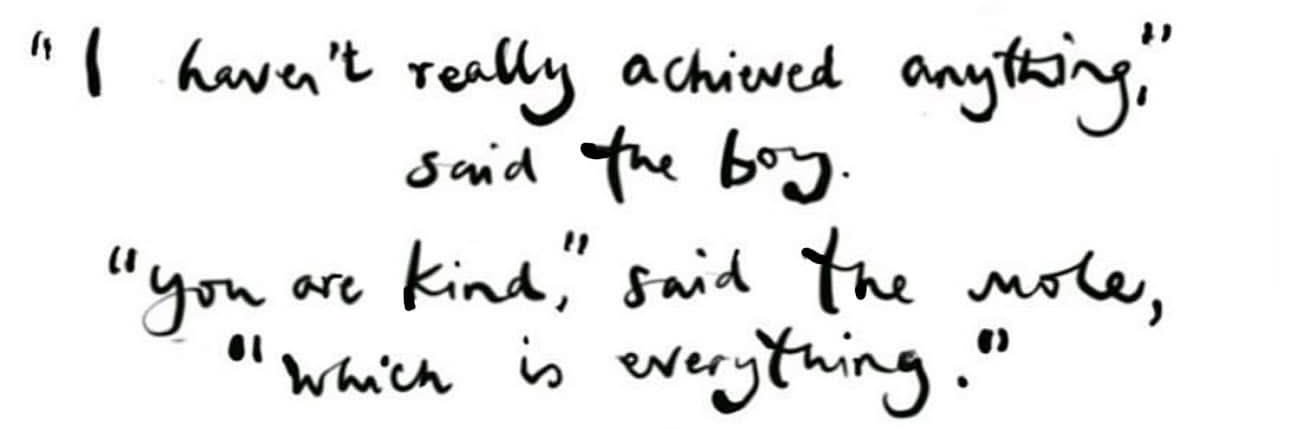 "I haven't really achieved anything,"
said the boy.
"you are kind," said the mole,
"which is everything."